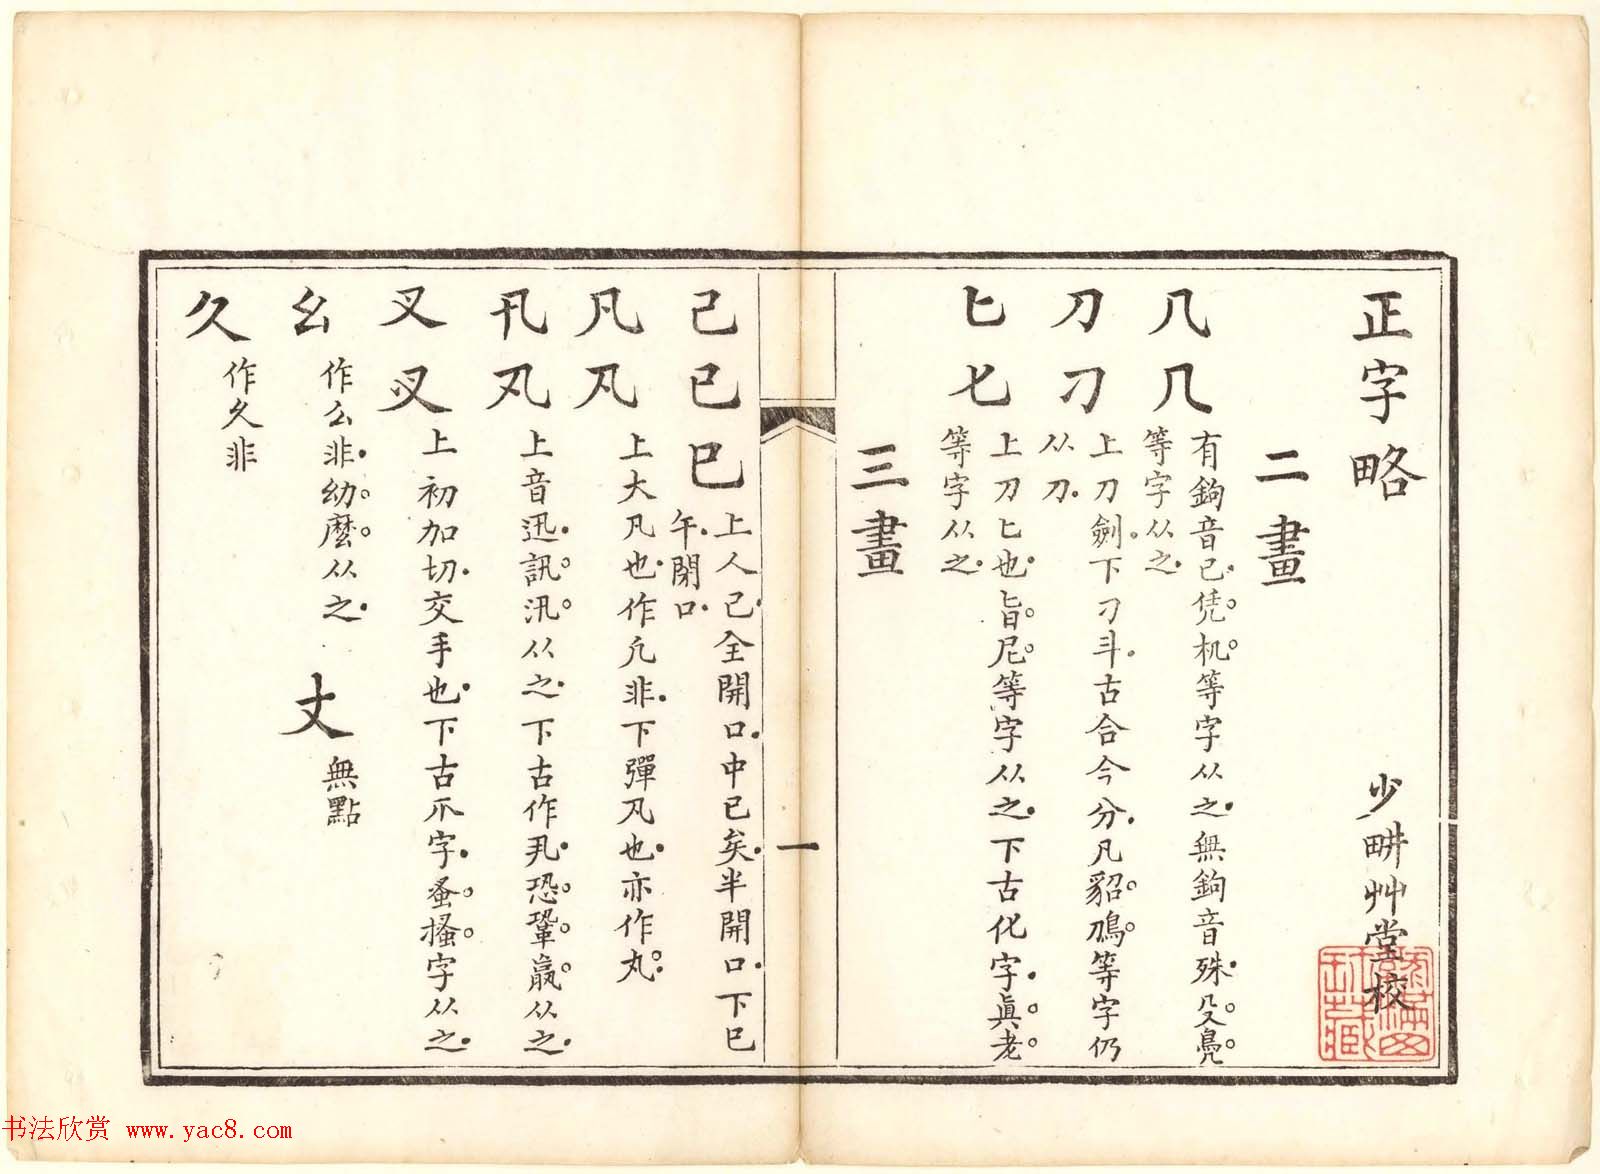 正字略 少畊艸堂校
二畫
几几 有鉤音已凭机等字从之無鉤音殊殳鳧
等字从之
刀刁 上刀劍下刁斗古合今分凡貂鳭等字仍
从刀
匕𠤎 上刀匕也旨尼等字从之下古化字眞老
等字从之
三畫
一
己已巳 上人己全開口中已矣半開口下巳
午閉口
凡凡 上大凡也作凢非下彈丸也亦作丸
卂丮 上音迅訊汛从之下古作丮恐鞏嬴从之
叉㕚 上初加切交手也下古爪字蚤搔字从之
幺 作么非幼麼从之 丈 無點
久 作乆非
书法欣赏 www.yac8.com